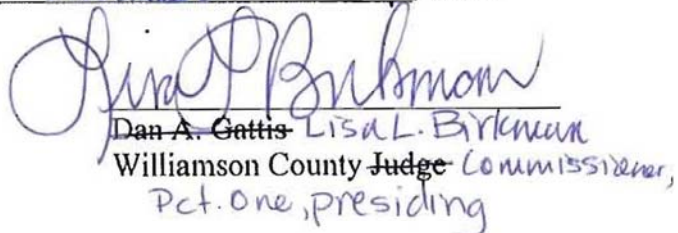 Lisa L Birkman
Dan A. Gattis Lisa L. Birkman
Williamson County Judge Commissioner,
Pct. One, presiding